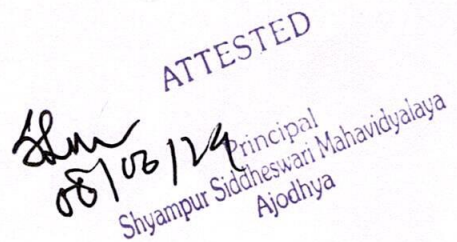 ATTESTED
08/06/24
Principal
Shyampur Siddheswari Mahavidyalaya
Ajodhya